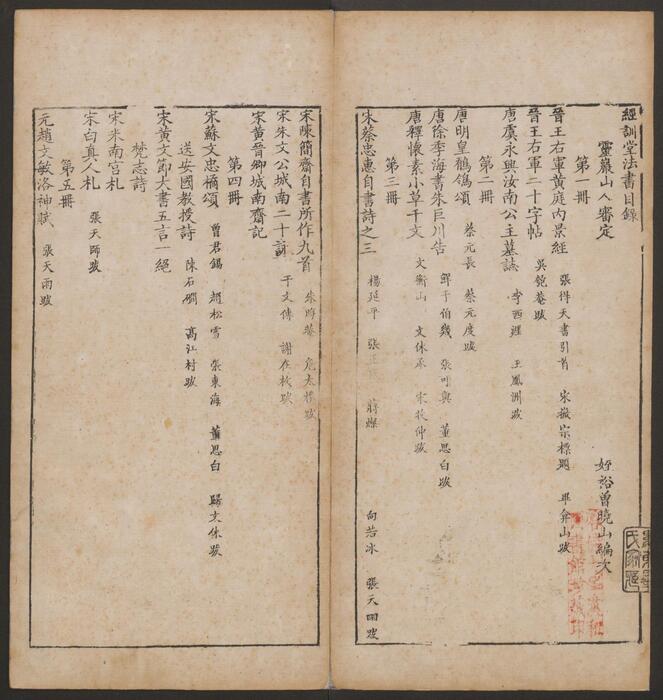 經訓堂法書目錄
靈巖山人審定
姪裕曾曉山編次
第一冊
晉王右軍黄庭內景經 張得天書引首 宋徽宗標題 畢弇山跋
晉王右軍二十字帖 吳匏菴跋
唐虞永興汝南公主墓誌 李西涯 王鳳洲跋
第二冊
唐明皇鶺鴒頌 蔡元長 蔡元度跋
唐徐季海書朱巨川告 鮮于伯幾 張可與 董思白跋
唐釋懷素小草千文 文衡山 文休承 宋牧仲跋
第三冊
宋蔡忠惠自書詩之三 楊延平 張正 蔣燦 向若冰 張天雨跋
宋陳簡齋自書所作九首 朱晦菴 危太樸跋
宋朱文公城南二十詠 干文傳 謝在杭跋
宋黄晉卿城南齋記
第四冊
宋蘇文忠橘頌 曾君錫 趙松雪 張東海 董思白 歸文休跋
送安國教授詩 陳石磵 高江村跋
宋黄文節大書五言一絕
梵志詩
宋米南宫札
宋白真人札 張天師跋
第五冊
元趙文敏洛神賦 張天雨跋